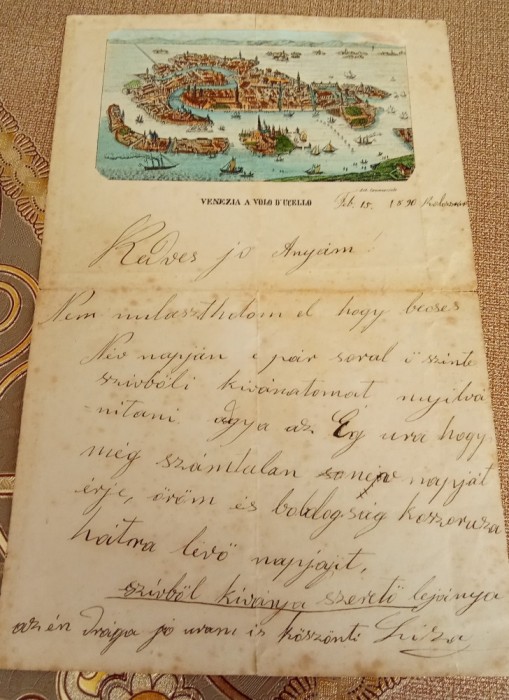 VENEZIA A VOLO D'UCELLO
Feb. 15. 1890 Kolozsvár
Kedves jó Anyám!
Nem mulaszthatom el hogy becses
Név napján e pár soral ő szinte
szivbőli kivánatomat nyilvá
nitani. Agya az Ég ura hogy
még számtalan neve napját
érje, öröm és boldogság koszoruza
hátora lévő napjajit,
szívből kívánja szerető lejánya
az én drága jó uram is köszönti Liza